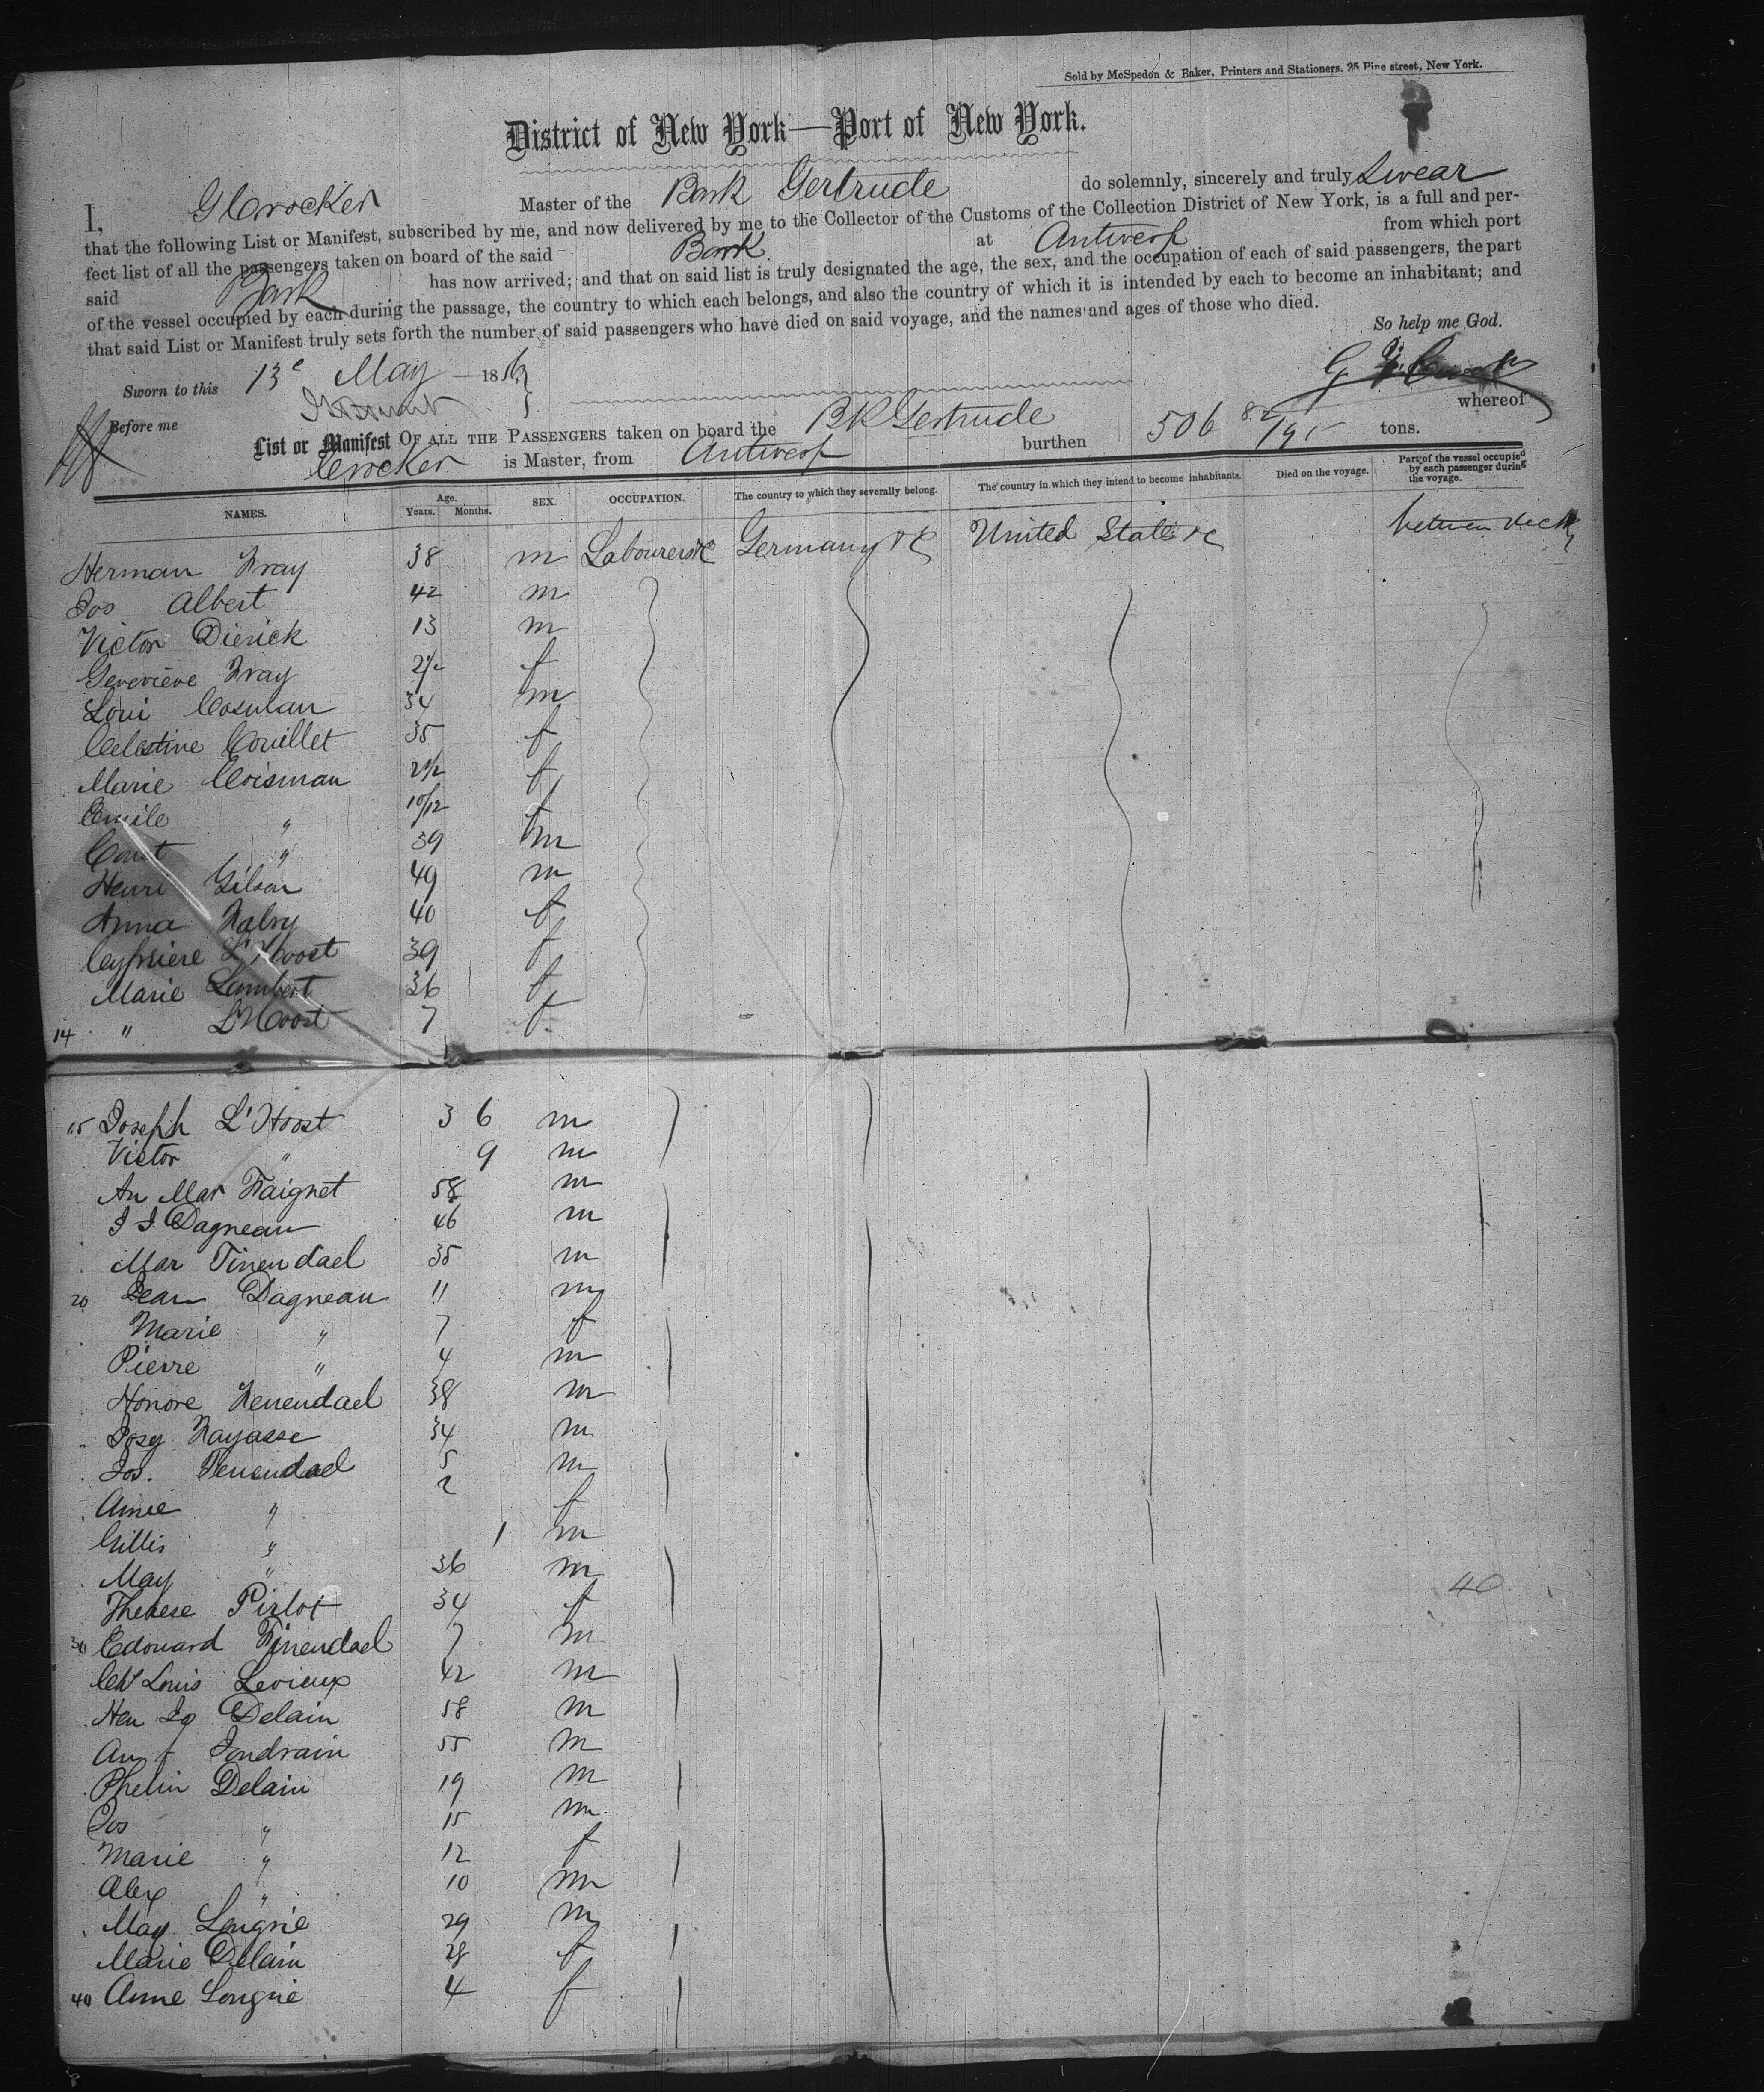 Sold by McSpedon & Baker, Printers and Stationers. 25 Pine street, New York.
District of New York—Port of New York.
I, G Crocker Master of the Bark Gertrude do solemnly, sincerely and truly Swear
that the following List or Manifest, subscribed by me, and now delivered by me to the Collector of the Customs of the Collection District of New York, is a full and per-
fect list of all the passengers taken on board of the said Bark at Antwerp from which port
said Bark has now arrived; and that on said list is truly designated the age, the sex, and the occupation of each of said passengers, the part
of the vessel occupied by each during the passage, the country to which each belongs, and also the country of which it is intended by each to become an inhabitant; and
that said List or Manifest truly sets forth the number of said passengers who have died on said voyage, and the names and ages of those who died.
So help me God.
Sworn to this 13 May 185
Before me
List or Manifest OF ALL THE PASSENGERS taken on board the Bk Gertrude whereof
Crocker is Master, from Antwerp burthen 506 tons.
NAMES. Age. Years. Months. SEX. OCCUPATION. The country to which they severally belong. The country in which they intend to become inhabitants. Died on the voyage. Part of the vessel occupied by each passenger during the voyage.
Herman Fray 38 m Labourers &c Germany &c United States &c between deck
Jos Albert 42 m
Victor Dierick 13 m
Genevieve Fray 2½ f
Loui Cosman 34 m
Celestine Couillet 35 f
Marie Coisman 2½ f
Emile " 10/12 f
Const " 39 m
Henri Gilson 49 m
Anna Fabry 40 f
L'Hoost 39 f
Marie Lambert 36 f
14 " L'Hoost 7 f
15 Joseph L'Hoost 3 6 m
Victor " 9 m
An Mar Faignet 58 m
J J Dagneau 46 m
Mar Tinendael 35 m
20 Jean Dagneau 11 m
Marie " 7 f
Pierre " 4 m
Honore Fenendael 38 m
Josg Fayasse 34 m
Jos. Tenendael 5 m
Amee " 2 f
Gillis " 1 m
May " 36 m
Therese Pirlot 34 f
30 Edouard Finendael 7 m
Ch Louis Levieux 42 m
Hen Jg Delain 58 m
An f Jondrain 55 m
Phelin Delain 19 m
Jos " 15 m
Marie " 12 f
Alex " 10 m
May Longrie 29 m
Marie Delain 28 f
40 Anne Longrie 4 f
40